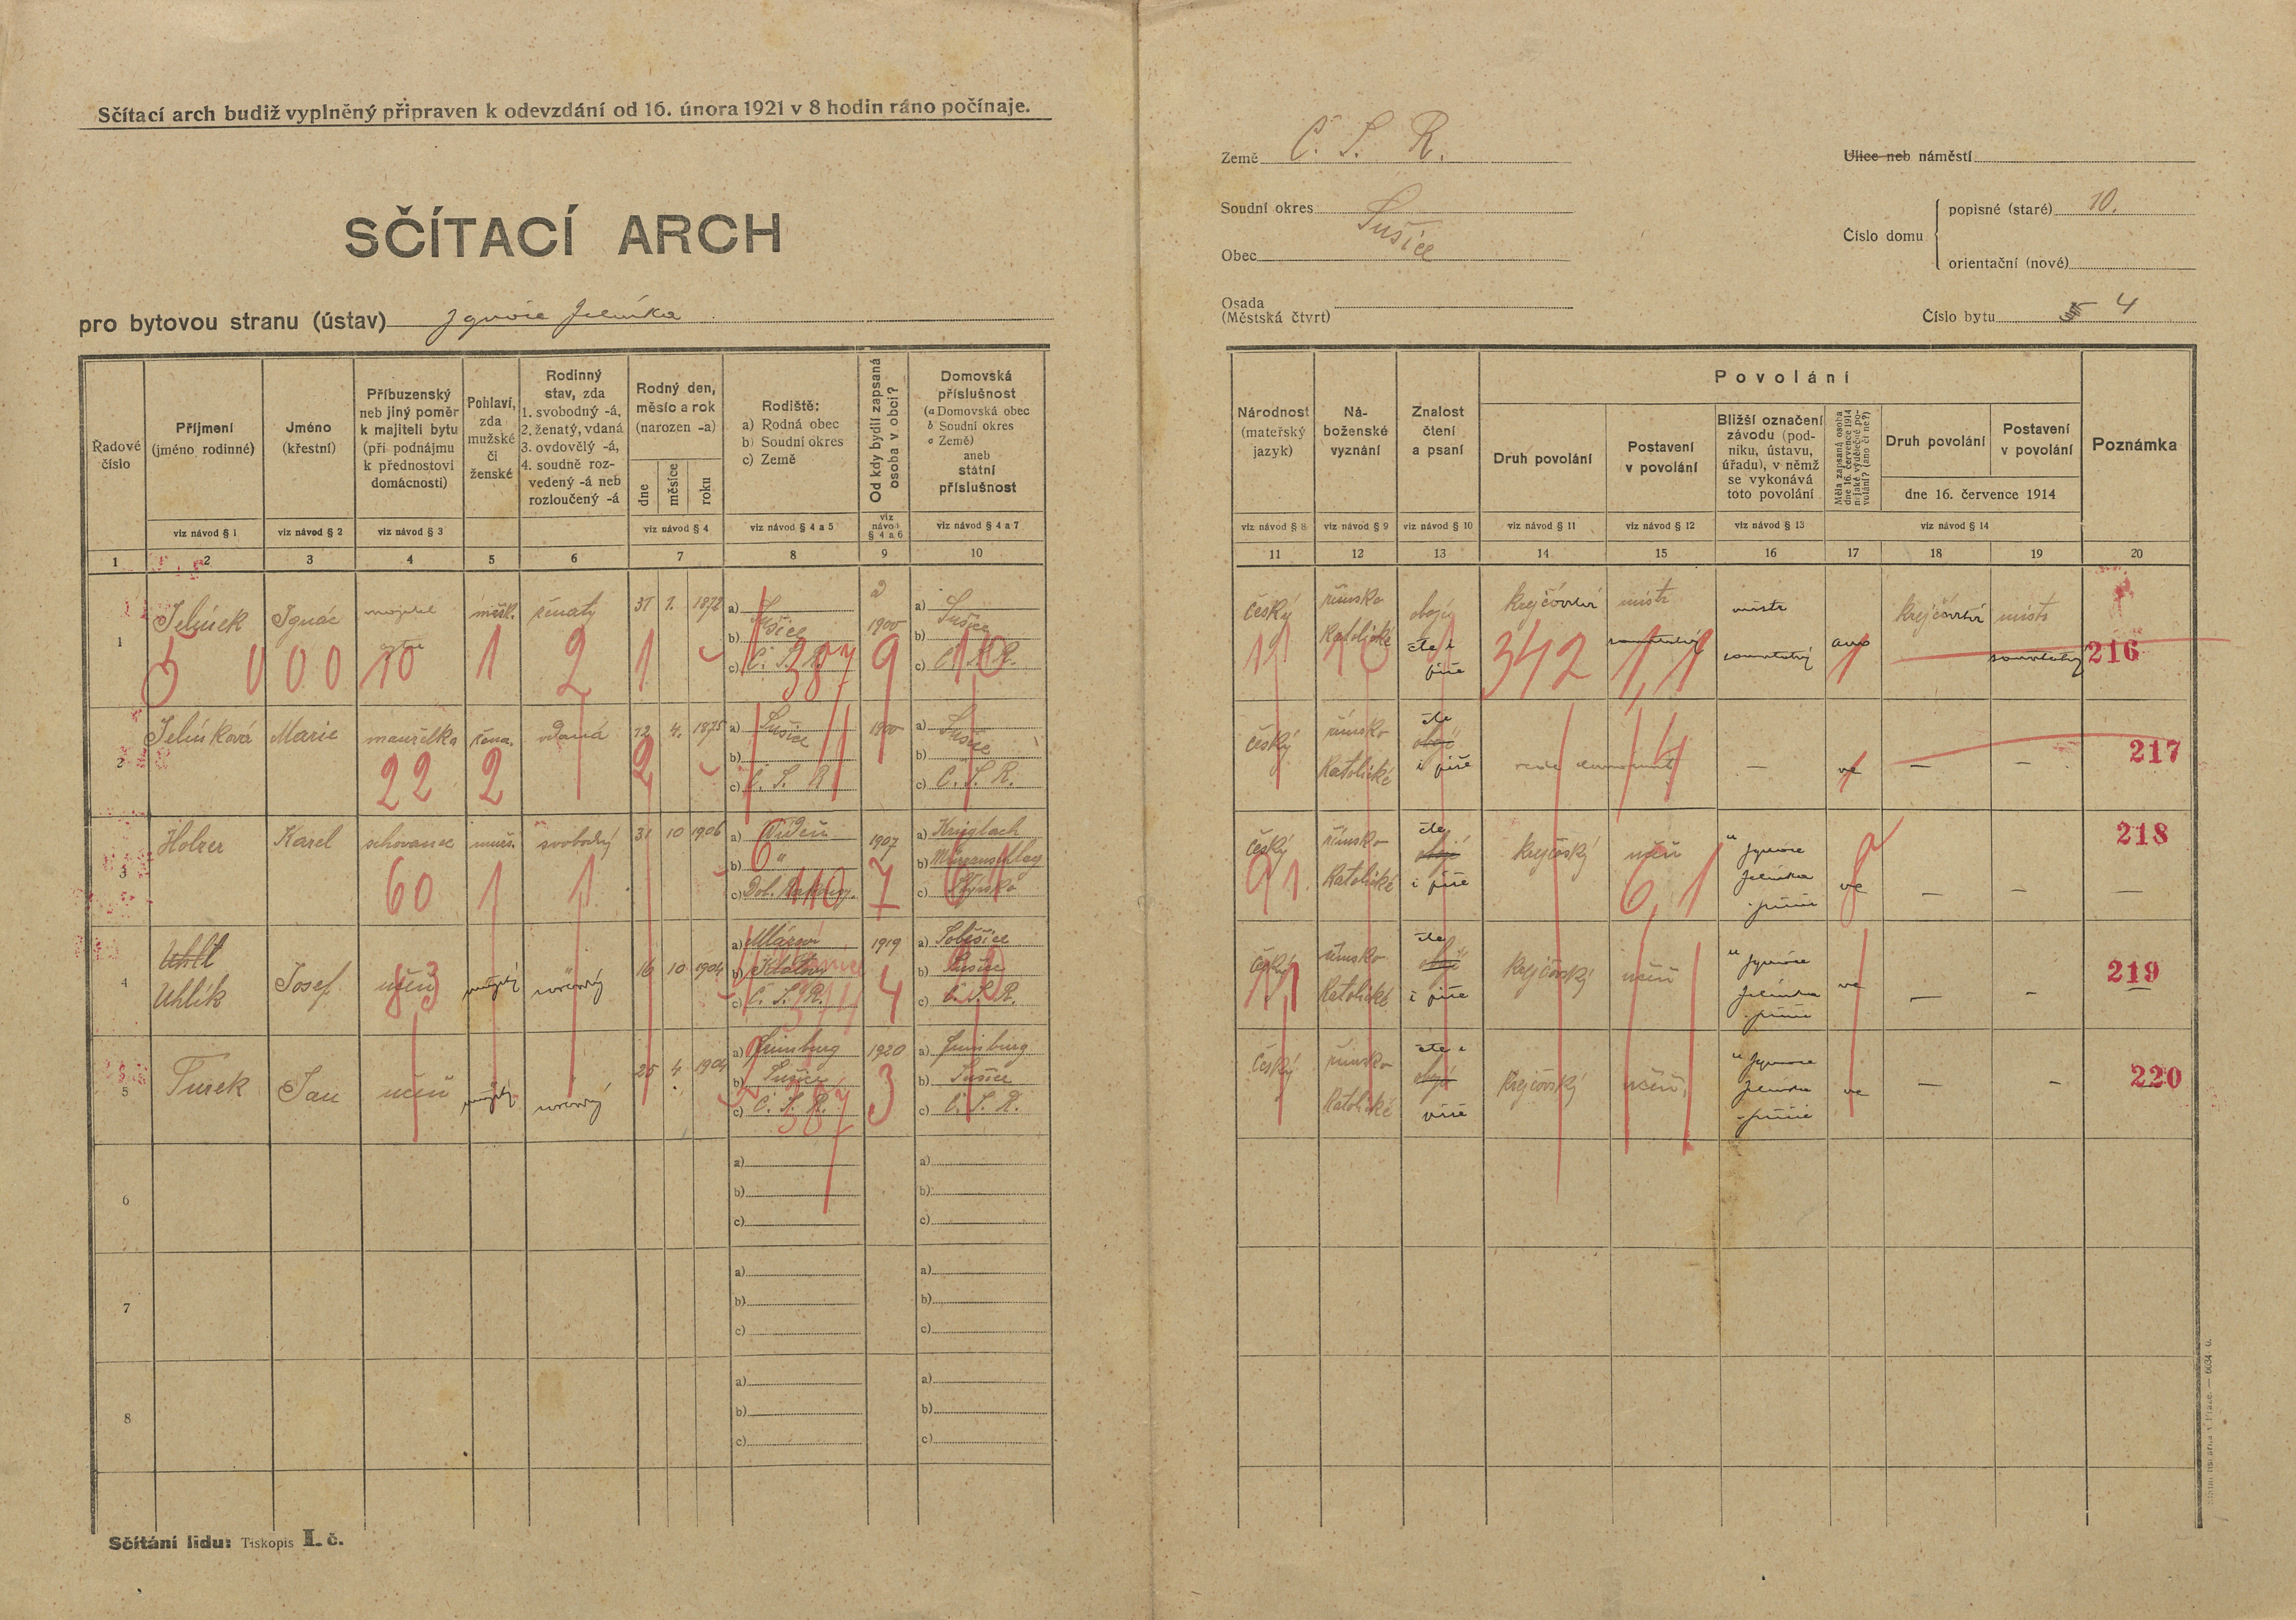 Sčítací arch budiž vyplněný připraven k odevzdání od 16. února 1921 v 8 hodin ráno počínaje.
SČÍTACÍ ARCH
pro bytovou stranu (ústav) Ignáce Jelínka
Země Č. S. R.
Soudní okres Sušice
Obec
Osada
(Městská čtvrt)
Ulice neb náměstí
Číslo domu
popisné (staré) 10.
orientační (nové)
Číslo bytu 4
Řadové číslo
Příjmení (jméno rodinné)
Jméno (křestní)
Příbuzenský neb jiný poměr k majiteli bytu (při podnájmu k přednostovi domácnosti)
Pohlaví, zda mužské či ženské
Rodinný stav, zda 1. svobodný -á, 2. ženatý, vdaná 3. ovdovělý -á, 4. soudně rozvedený -á neb rozloučený -á
Rodný den, měsíc a rok (narozen -a)
dne měsíce roku
Rodiště: a) Rodná obec b) Soudní okres c) Země
Od kdy bydlí zapsaná osoba v obci?
Domovská příslušnost (a Domovská obec b Soudní okres c Země) aneb státní příslušnost
viz návod § 1 viz návod § 2 viz návod § 3 viz návod § 4 viz návod § 4 a 5 viz návod § 4 a 6 viz návod § 4 a 7
1 2 3 4 5 6 7 8 9 10
Národnost (mateřský jazyk)
Náboženské vyznání
Znalost čtení a psaní
Povolání
Druh povolání
Postavení v povolání
Bližší označení závodu (podniku, ústavu, úřadu), v němž se vykonává toto povolání
Měla zapsaná osoba dne 16. července 1914 nějaké výdělečné povolání? (ano či ne?)
Druh povolání
Postavení v povolání
dne 16. července 1914
Poznámka
viz návod § 8 viz návod § 9 viz návod § 10 viz návod § 11 viz návod § 12 viz návod § 13 viz návod § 14
11 12 13 14 15 16 17 18 19 20
1 Jelínek Ignác majitel bytu mušk. ženatý 31 1. 1872 a) Sušice b) c) Č. S. R. 1900 a) Sušice b) c) Č. S. R.
0 0 0 0 10 1 2 1 387 9 10
český římsko katolické obojí čte i píše krejčovství mistr samostatný mistr samostatný ano krejčovství mistr samostatný 216
11 10 342 1,1 1
2 Jelínková Marie manželka žena. vdaná 12 4. 1875 a) Sušice b) c) Č. S. R. 1900 a) Sušice b) c) Č. S. R.
22 2 2
český římsko katolické čte obojí i píše — ne — — 217
3 Holzer Karel schovanec mušs. svobodný 31 10 1906 a) Vídeň b) " c) Dol. Rakousy. 1907 a) Krieglach b) Mürzzuschlag c) Štýrsko
60 1 1 6 110 7
český římsko katolické čte obojí i píše krejčovský učeň " Ignáce Jelínka ne — — — 218
91 6,1
4 Uhlí Uhlík Josef. učeň mužský svobodný 16 10 1904 a) b) Klatovy c) Č. S. R. 1919 a) Soběšice b) Sušice c) Č. S. R.
83 4
český římsko katolické čte obojí i píše krejčovský učeň " Ignáce Jelínka ne — — 219
5 Turek Jan učeň mužský svobodný 25 4 1904 a) b) Sušice c) Č. S. R. 1920 a) b) Sušice c) Č. S. R.
387 3
český římsko katolické čte i obojí píše krejčovský učeň " Ignáce Jelínka ne — — 220
6 a) b) c) a) b) c)
7 a) b) c) a) b) c)
8 a) b) c) a) b) c)
Sčítání lidu: Tiskopis I. č.